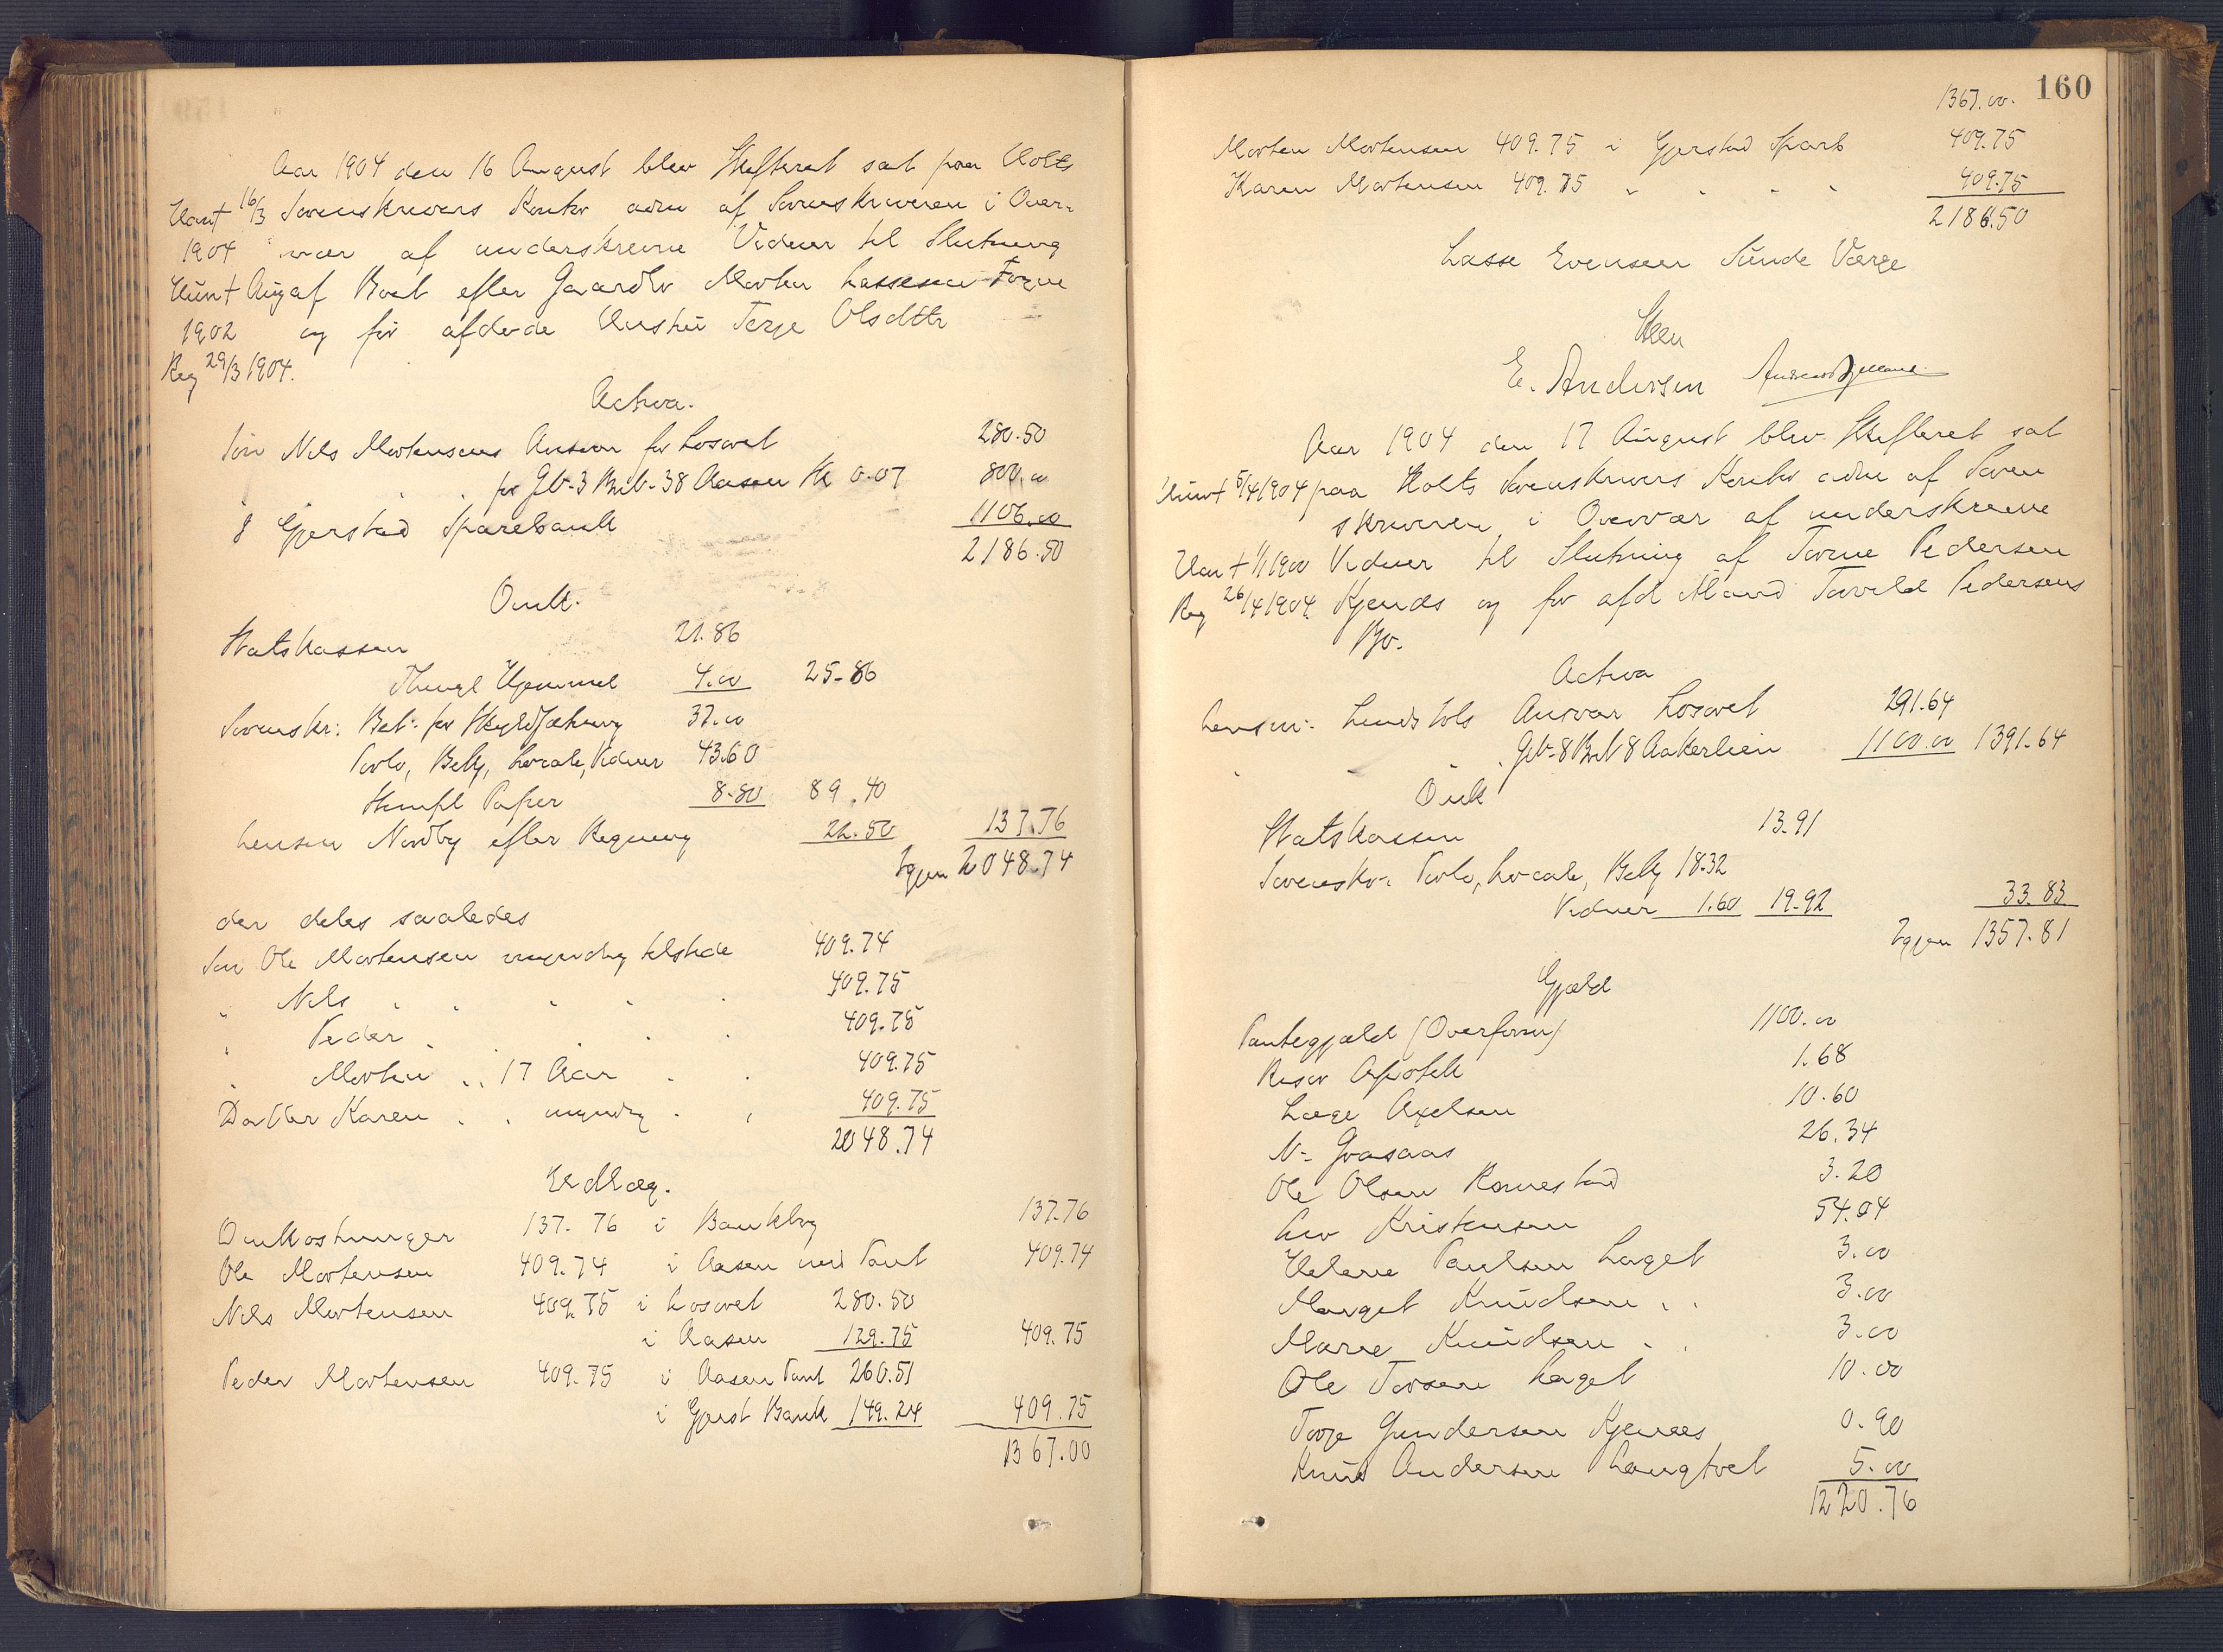 Aar 1904 den 16 August blev Skifteret sat paa Holts
16/3 Sorenskrivers Kontor adm af Sorenskriveren i Over-
1904 vær af underskrevne Vidner til Slutning
Aug af Boet efter Gaardbr Morten Lassesen
1902 og før afdøde Hustru Terje Olsdtr
Reg 29/3 1904.
Activa.
Søn Nils Mortensens Ansvar for Løsøret 280.50
" " " for Gb-3 Bnb-38 Aasen Sk 0.07 800.00
I Gjerstad Sparebank 1106.00
2186.50
Omk.
Statskassen 21.86
Thingl Hjemmel 4.00 25-86
Sorenskr: Bet. for Skyldsætning 37.00
Porto, Bekj, Locale, Vidner 43.60
Stempl Papir 8.80 89.40
Lensm Nordby efter Regning 22.50 137.76
Igjen 2048.74
der deles saaledes
Søn Ole Mortensen myndig tilstede 409.74
" Nils " " " " 409.75
" Peder " " " " 409.75
" Morten " " 17 Aar " " 409.75
Datter Karen " " myndig " " 409.75
2048.74
Udlæg.
Omkostninger 137.76 i Bankbog 137.76
Ole Mortensen 409.74 i Aasen med Pant 409.74
Nils Mortensen 409.75 i Løsøret 280.50
i Aasen 129.75 409.75
Peder Mortensen 409.75 i Aasen Pant 260.51
i Gjerst Bank 149.24 409.75
1367.00
160
1367.00
Morten Mortensen 409.75 i Gjerstad Sparb 409.75
Karen Mortensen 409.75 " " " " 409.75
2186.50
Lasse Evensen Sunde Værge
E. Andersen
Aar 1904 den 17 August blev Skifteret sat
5/4 1904 paa Holts Sorenskrivers Kontor adm af Soren
skriveren i Overvær af underskrevne
1/1 1900 Vidner til Slutning af Torine Pedersen
Reg 26/4 1904 Kjendes og før afd Mand Tarald Pedersens
Bo.
Activa
Lensm: Lundsvols Ansvar Løsøret 291.64
" " " Gb-8 Bnb 8 Aakerlien 1100.00 1391.64
Omk
Statskassen 13.91
Sorenskr: Porto, Locale, Bekj 18.32
Vidner 1.60 19.92 33.83
Igjen 1357.81
Gjæld
Pantegjæld (Overform) 1100.00
Risør Apothek 1.68
Læge Axelsen 10.60
N. Graasaas 26.34
Ole Olsen Ramestad 3.20
Kristensen 54.04
Helene Paulsen Laget 3.00
Marget Knudsen " " 3.00
Marie Knudsen " " 3.00
Ole Torsen Laget 10.00
Terje Gundersen Kjenees 0.90
Knud Andersen Langtvet 5.00
1220.76